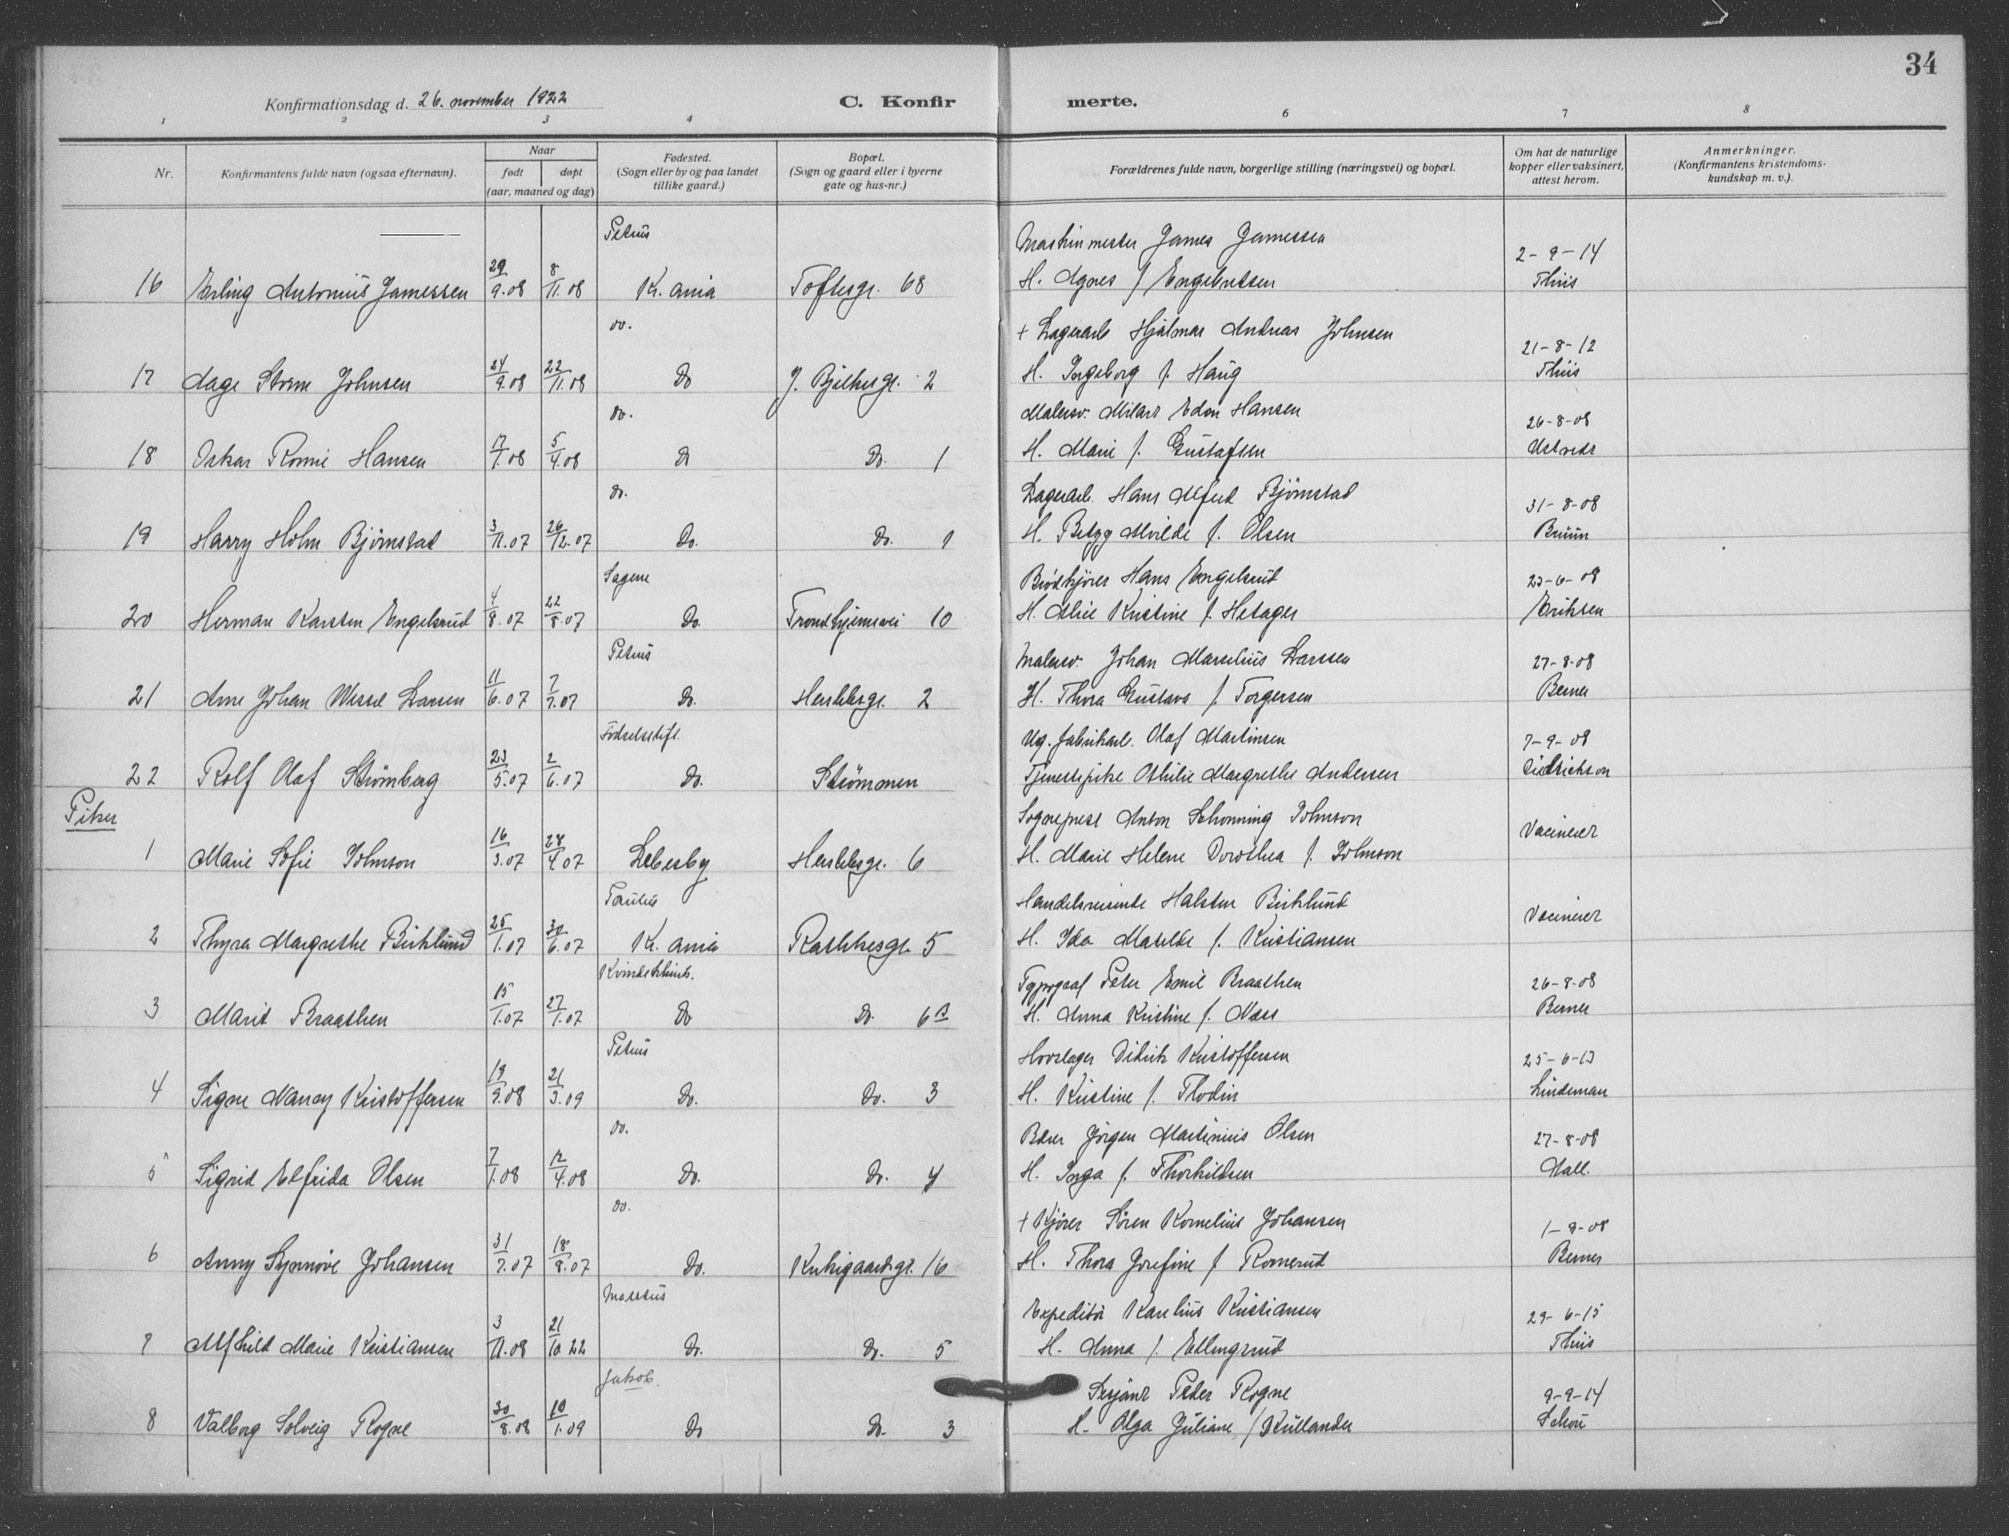 34
Konfirmationsdag d. 26. november 1922
C. Konfirmerte.
1 2 3 4 6 7 8
Nr.
Konfirmantens fulde navn (ogsaa efternavn).
Naar
født
døpt
(aar, maaned og dag)
Fødested.
(Sogn eller by og paa landet
tillike gaard.)
Bopæl.
(Sogn og gaard eller i byerne
gate og hus-nr.)
Forældrenes fulde navn, borgerlige stilling (næringsvei) og bopæl.
Om hat de naturlige
kopper eller vaksinert,
attest herom.
Anmerkninger.
(Konfirmantens kristendoms-
kundskap m. v.).
Petrus Maskinmester James Jamessen 2-9-14
16 Erling Antonius Jamessen 29/9.08 8/11.08 K.ania Toftesgt. 68 H. Agnes f Engebretsen Thiis
do. + Lagerarb Hjalmar Andreas Johnsen 21-8-12
17 Aage Strøm Johnsen 24/9.08 22/11.08 Do J. Bjelkesgt. 2 H. Ingeborg f. Haug Thiis
do. Malersv. Milars Edon Hansen 26-8-08
18 Oskar Ronnie Hansen 17/1.08 5/4.08 Do Do. 1 H. Marie f. Gustafsen Ustvedt
do. Lagerarb. Hans Alfred Bjørnstad 31-8-08
19 Harry Holm Bjørnstad 3/11.07 26/12.07 Do. Do. 1 H. Betzy Alvilde f. Olsen Bruun
Sagene Brødkjører Hans Engelsrud 23-6-08
20 Herman Karsten Engelsrud 4/8.07 22/8.07 Do. Trondhjemsvei 10 H. Alice Kristine f. Hetager Eriksen
Petrus Malersv. Johan Marselius Larssen 27-8-08
21 Arne Johan Wessel Larsen 11/6.07 7/7.07 Do. Herslebsgt. 2 H. Thora Gustava f. Torgersen Berner
Fødselsstift. Ug. fabrikarb. Olaf Martinsen 7-9-08
22 Rolf Olaf Strømberg 23/5.07 2/6.07 Do. Strømmen Tjenestepike Othilie Margrethe Andersen Didrichson
Piker Sogneprest Anton Schønning Johnson Vaccineret
1 Marie Sofie Johnson 16/3.07 28/4.07 Lebesby Herslebsgt. 6 H. Marie Helene Dorothea f. Johnson
Paulus Handelsreisende Halsten Birklund Vaccineret
2 Thyra Margrethe Birklund 25/1.07 30/6.07 K.ania Rathkesgt. 5 H. Ida Matilde f. Kristiansen
Kvindeklinik. Typograf Peter Emil Braathen 26-8-08
3 Marit Braathen 15/1.07 27/1.07 Do Do. 6 B H. Anna Kristine f. Næss Berner
Petrus Hovslager Didrik Kristoffersen 25-6-13
4 Signe Nancy Kristoffersen 19/9.08 21/3.09 Do. Do. 3 H. Kristine f. Flodin Lindeman
do. Bærer Jørgen Martinius Olsen 27-8-08
5 Sigrid Elfrida Olsen 7/1.08 12/4.08 Do. Do. 4 H. Inga f. Thorkildsen Mall.
do. + Kjører Søren Kornelius Johansen 1-9-08
6 Anny Synnøve Johansen 31/7.07 18/8.07 Do. Kirkegaardsgt. 16 H. Thora Josefine f Romerud Berner
Matteus Expeditør Karelius Kristiansen 29-6-15
7 Alfhild Marie Kristiansen 3/11.08 21/10 22 Do. Do. 5 H. Anna f. Ellingsrud Thiis
Jakob. Sersjant Peder Rogne 9-9-14
8 Valborg Solveig Rogne 30/8.08 10/1.09 Do Do. 3 H. Olga Juliane f Kullander Schou